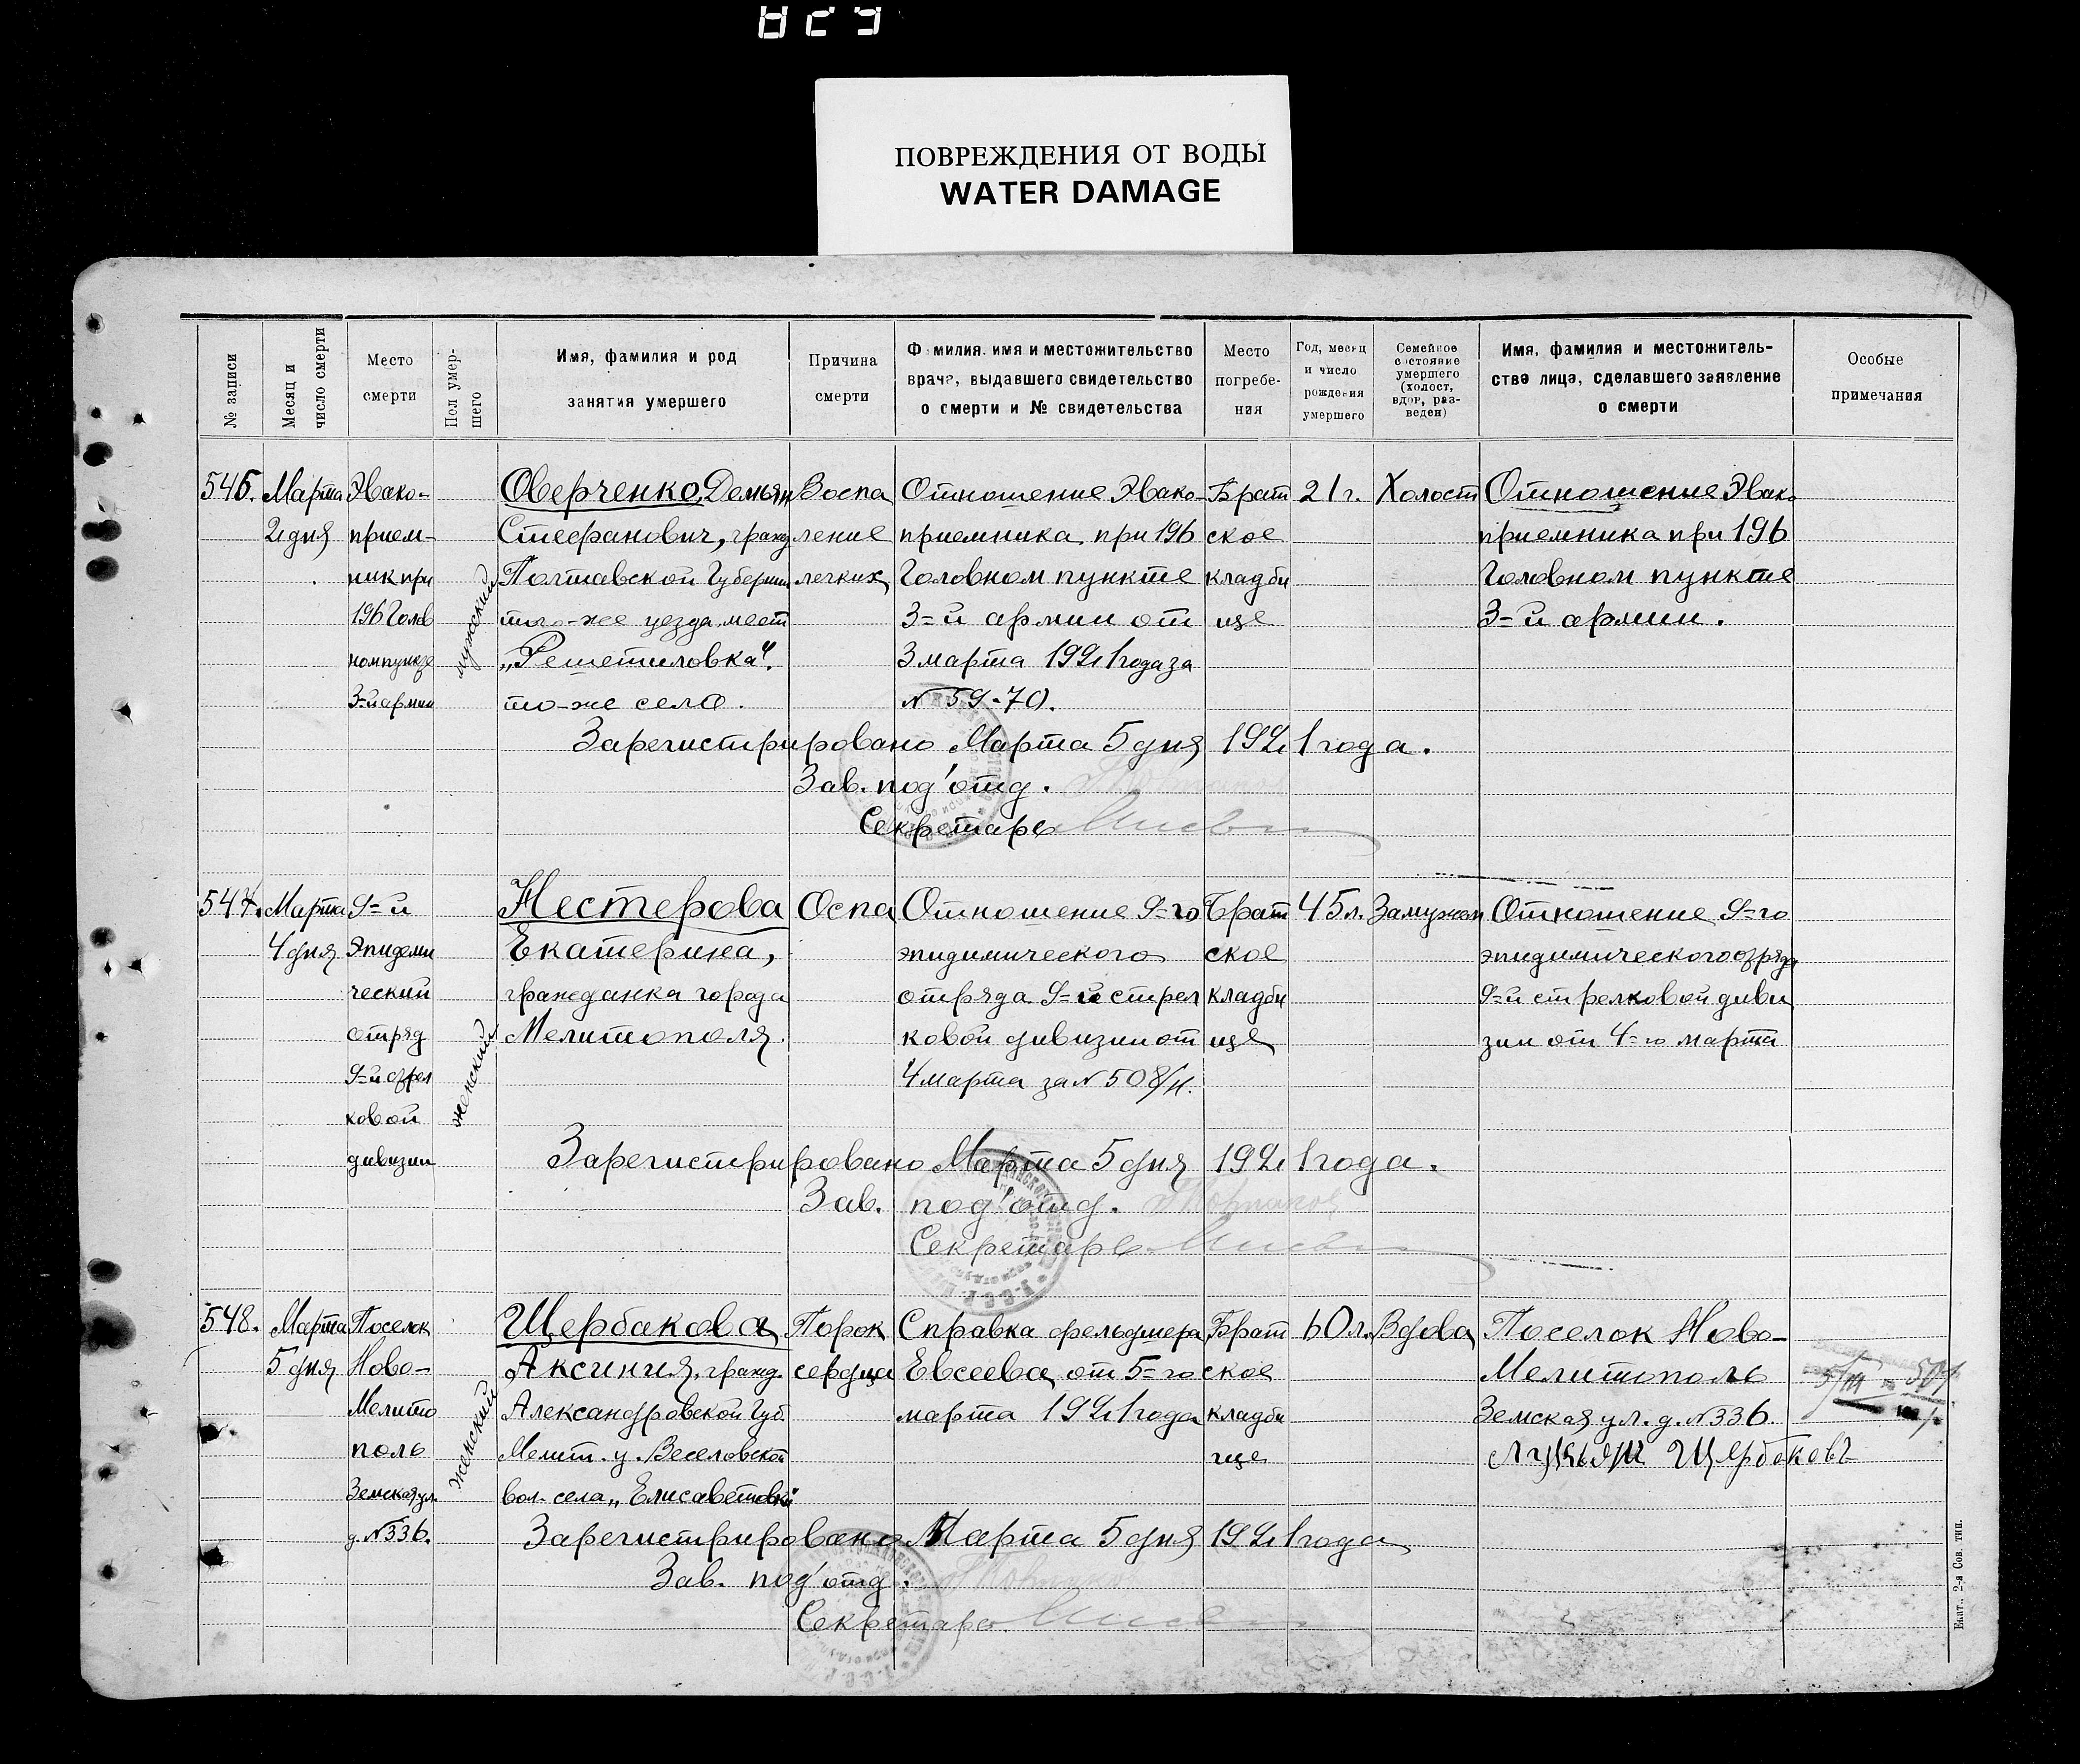 ПОВРЕЖДЕНИЯ ОТ ВОДЫ
WATER DAMAGE
№ записи
Месяц и
число смерти
Место
смерти
Пол умер-
шего
Имя, фамилия и род
занятия умершего
Причина
смерти
Фамилия, имя и местожительство
врача, выдавшего свидетельство
о смерти и № свидетельства
Место
погребе-
ния
Год, месяц
и число
рождения
умершего
Семейное
состояние
умершего
(холост,
вдов, раз-
веден)
Имя, фамилия и местожитель-
ство лица, сделавшего заявление
о смерти
Особые
примечания
546.
Марта
2 дня
Эвако-
прием-
ник при
196 Голов
ном пункте
3=й армии
мужской
Оверченко, Демьян
Стефанович, гражд
Полтавской Губернии
того-же уезда, мест
„Решетиловка“.
то-же село.
Воспа
ление
легких
Отношение Эвако-
приемника при 196
Головном пункте
3=й армии от
3 марта 1921 года за
№ 59-70.
Брат
ское
кладби
ще
21 г.
Холост
Отношение Эвако-
приемника при 196
Головном пункте
3=й армии.
Зарегистрировано Марта 5 дня 1921 года.
Зав. под'отд.
Секретарь
547.
Марта
4 дня
9=й
Эпидеми
ческий
отряд
9=й стрел
ковой
дивизии
женский
Нестерова
Екатерина,
гражданка города
Мелитополя.
Оспа
Отношение 9=го
эпидимического
отряда 9=й стрел
ковой дивизии от
4 марта за № 508/н.
Брат
ское
кладби
ще
45 л.
Замужем
Отношение 9=го
эпидимического отряда
9=й стрелковой диви
зии от 4=го марта
Зарегистрировано Марта 5 дня 1921 года.
Зав. под'отд.
Секретарь
548.
Марта
5 дня
Поселок
Ново-
Мелито
поль
Земская ул.
д. №336.
женский
Щербакова
Аксиния, гражд.
Александровской Губ.
Мелит. у. Веселовской
вол. села „Елисаветовки“
Порок
сердца
Справка фельдшера
Евсеева от 5=го
марта 1921 года
Брат
ское
кладби
ще
60 л.
Вдова
Поселок Ново-
Мелитополь
Земская ул. д. №336.
Лукьян Щербаковъ
5/III
Зарегистрировано Марта 5 дня 1921 года
Зав. под'отд.
Секретарь
Екат., 2-а Сов. тип.